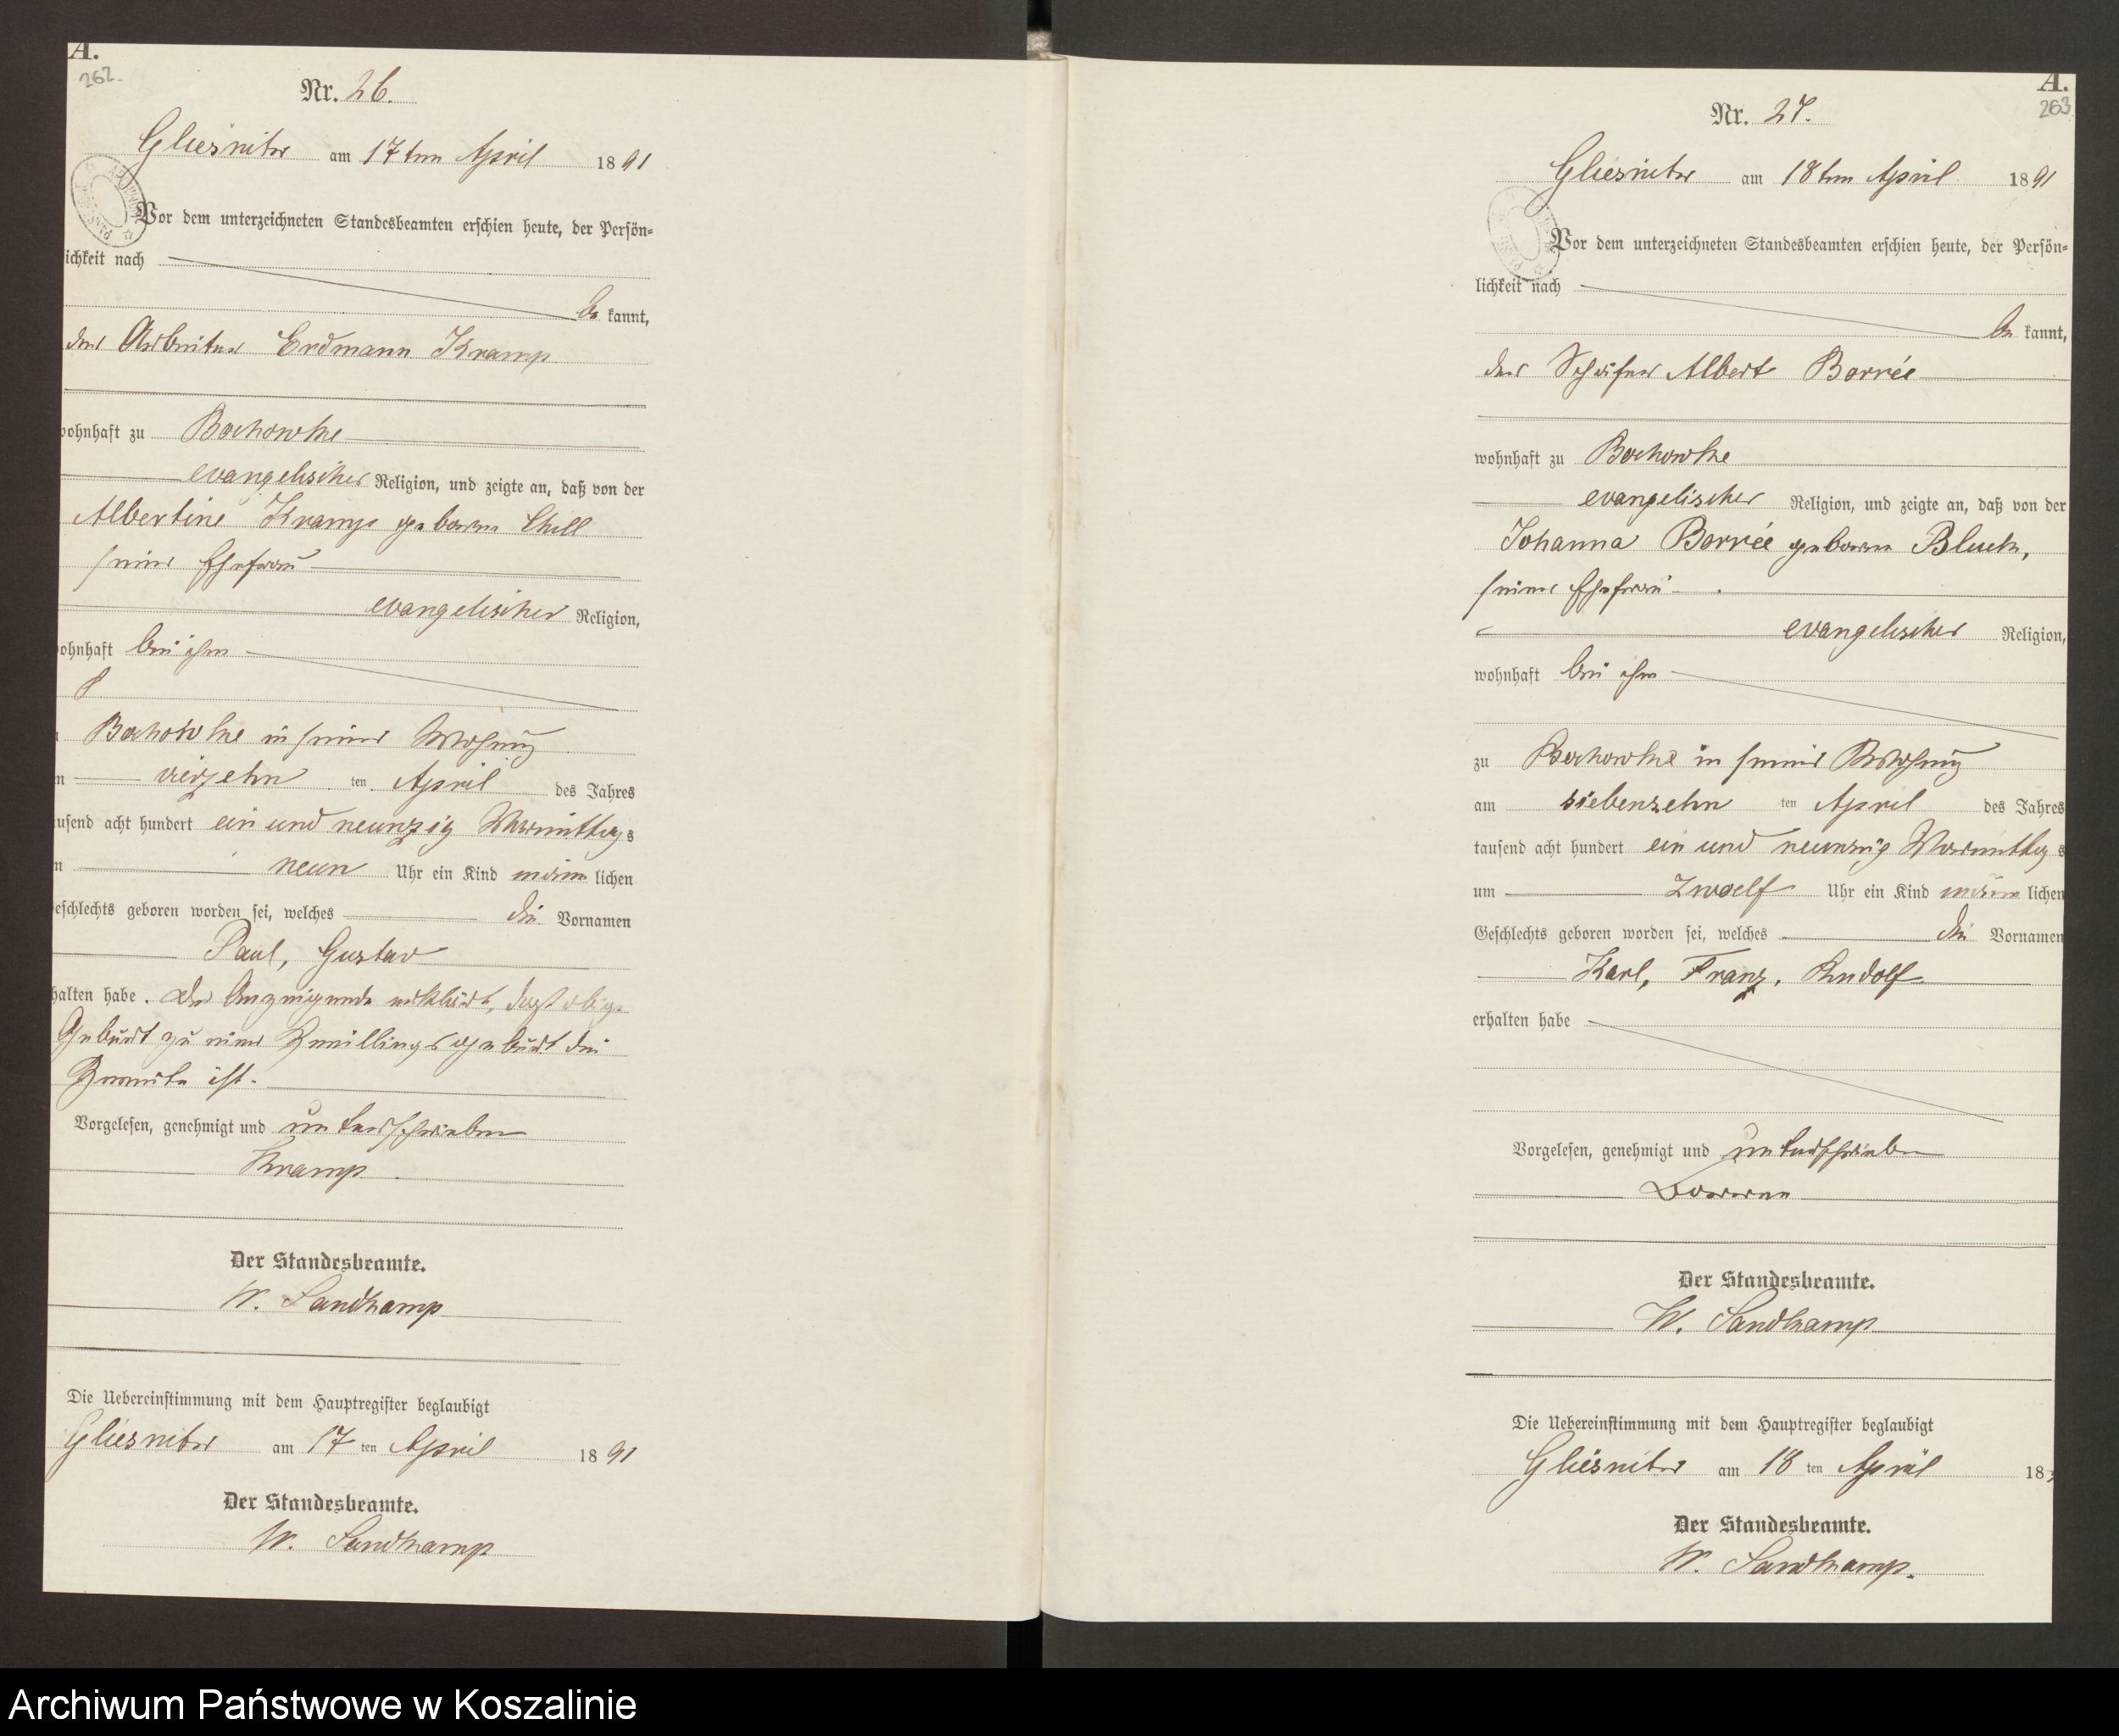 A.
262.
Nr. 26.
Gliesnitz am 17ten April 1891
Vor dem unterzeichneten Standesbeamten erschien heute, der Persön=
ichkeit nach
be kannt,
der Arbeiter Erdmann Kramp
ohnhaft zu Bochowke
evangelischer Religion, und zeigte an, daß von der
Albertine Kramp geborne
seiner Ehefrau
evangelischer Religion,
ohnhaft bei ihm
Bochowke in seiner Wohnung
n vierzehn ten April des Jahres
usend acht hundert ein und neunzig Vormittags
m neun Uhr ein Kind männ lichen
eschlechts geboren worden sei, welches die Vornamen
Paul, Gustav
halten habe. Der Anzeigende erklärt, daß obige
Geburt zu einer Zwillingsgeburt die
Zweite ist.
Vorgelesen, genehmigt und unterschrieben
Kramp
Der Standesbeamte.
W. Sandkamp
Die Uebereinstimmung mit dem Hauptregister beglaubigt
Gliesnitz am 17 ten April 1891
Der Standesbeamte.
W. Sandkamp
A.
263
Nr. 27.
Gliesnitz am 18ten April 1891
Vor dem unterzeichneten Standesbeamten erschien heute, der Persön=
lichkeit nach
be kannt,
der Schäfer Albert Borrée
wohnhaft zu Bochowke
evangelischer Religion, und zeigte an, daß von der
Johanna Borrée geborne
seiner Ehefrau
evangelischer Religion,
wohnhaft bei ihm
zu Bochowke in seiner Wohnung
am siebenzehn ten April des Jahres
tausend acht hundert ein und neunzig Vormittag s
um zwoelf Uhr ein Kind männ lichen
Geschlechts geboren worden sei, welches die Vornamen
Karl, Franz, Rudolf
erhalten habe
Vorgelesen, genehmigt und unterschrieben
Der Standesbeamte.
W. Sandkamp
Die Uebereinstimmung mit dem Hauptregister beglaubigt
Gliesnitz am 18 ten April 18
Der Standesbeamte.
W. Sandkamp.
Archiwum Państwowe w Koszalinie